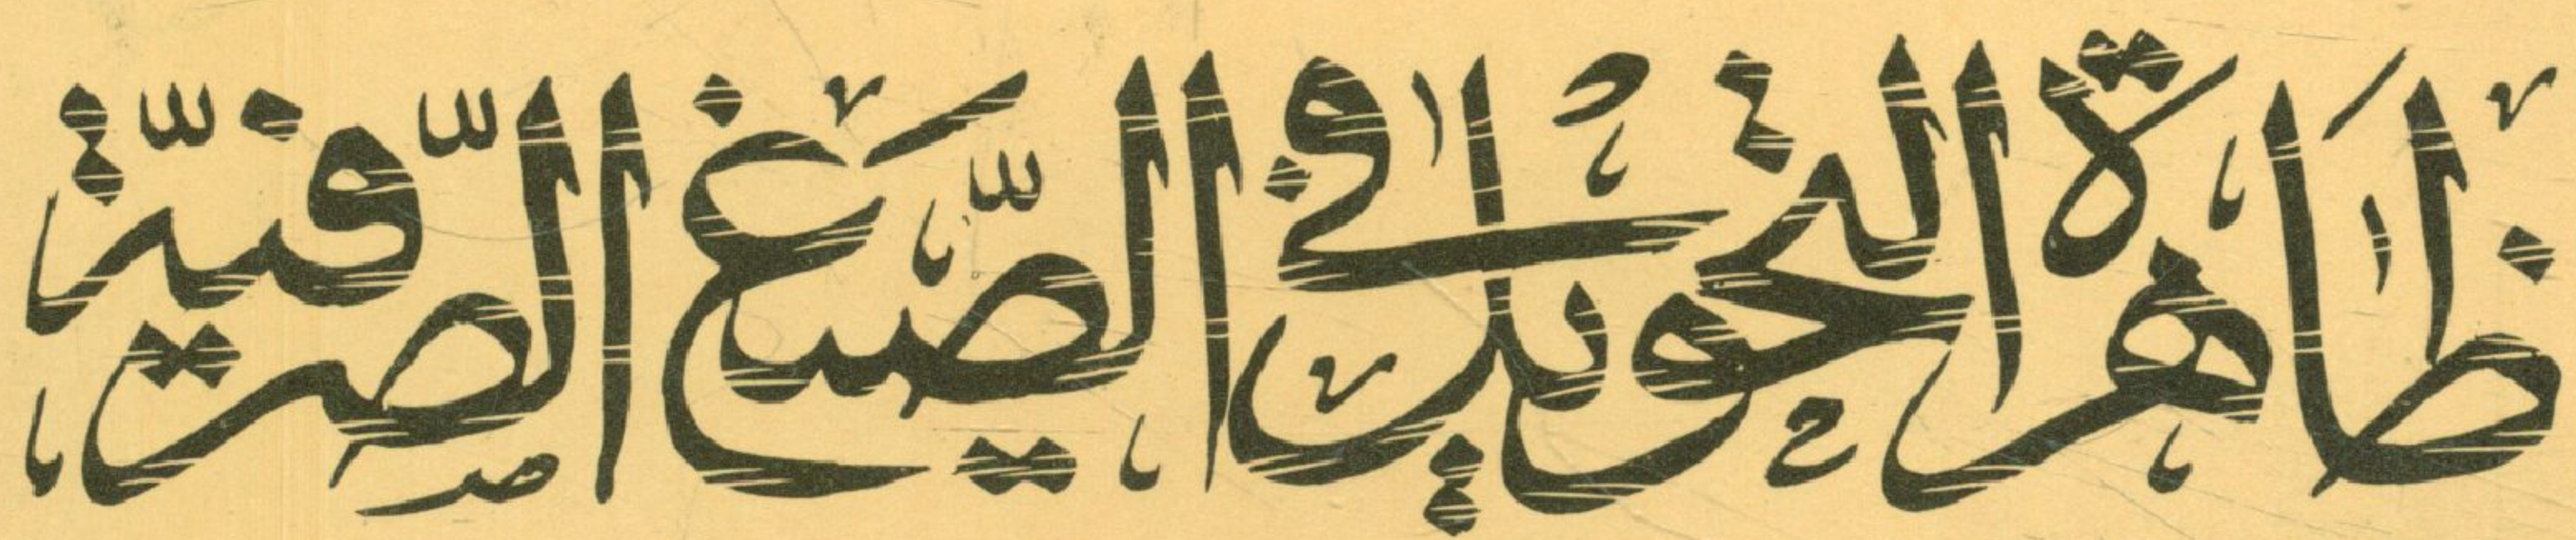 ظَاهرة التحويل في الصِّيَغ الصّرفيّة